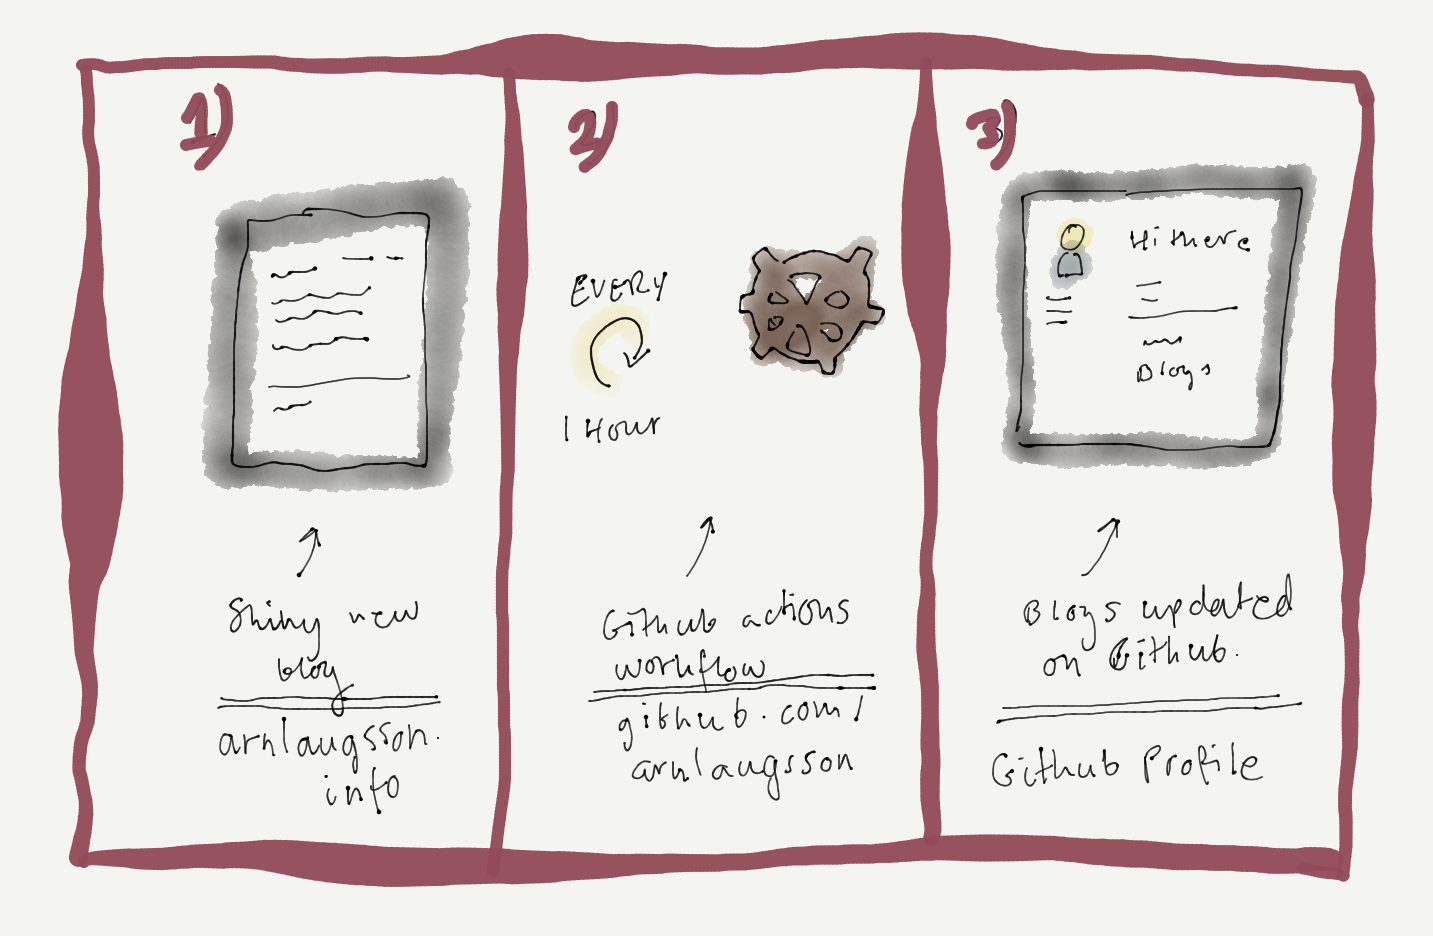 1)
Shiny new
blog
arnlaugsson.
info
2)
EVERY
1 Hour
Github actions
workflow
github.com/
arnlaugsson
3)
Hi there
Blogs
Blogs updated
on Github.
Github Profile